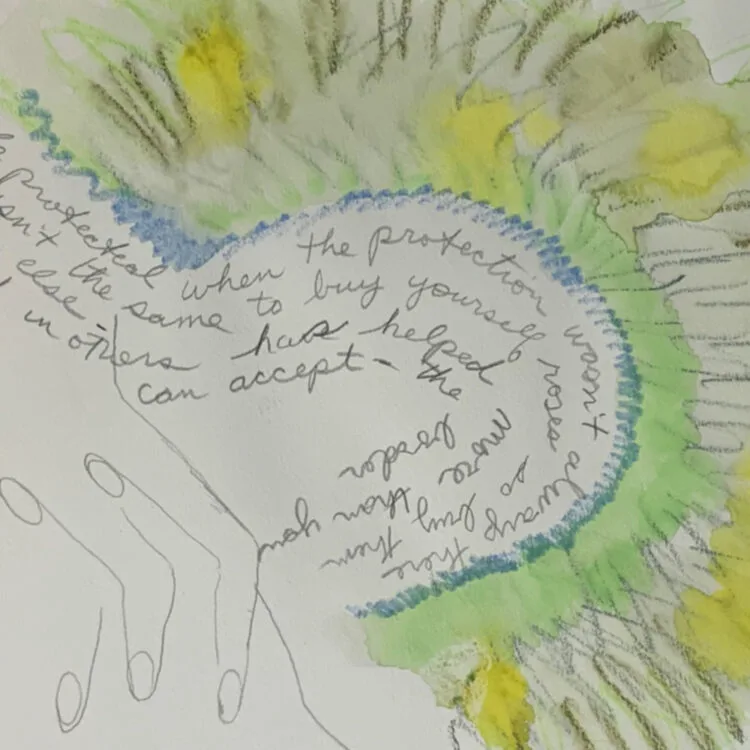 protected when the protection wasn't always there
isn't the same to buy yourself roses so buy them
else - has helped more than you
in others can accept - the